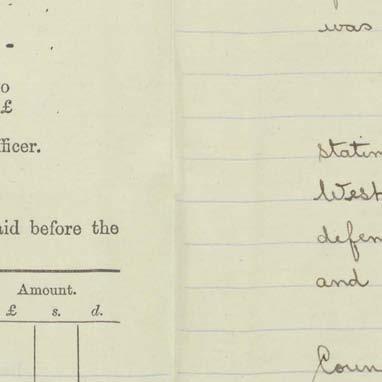 o
£
fficer.
aid before the
Amount.
£ s. d.
was
statin
West
defen
and
Coun